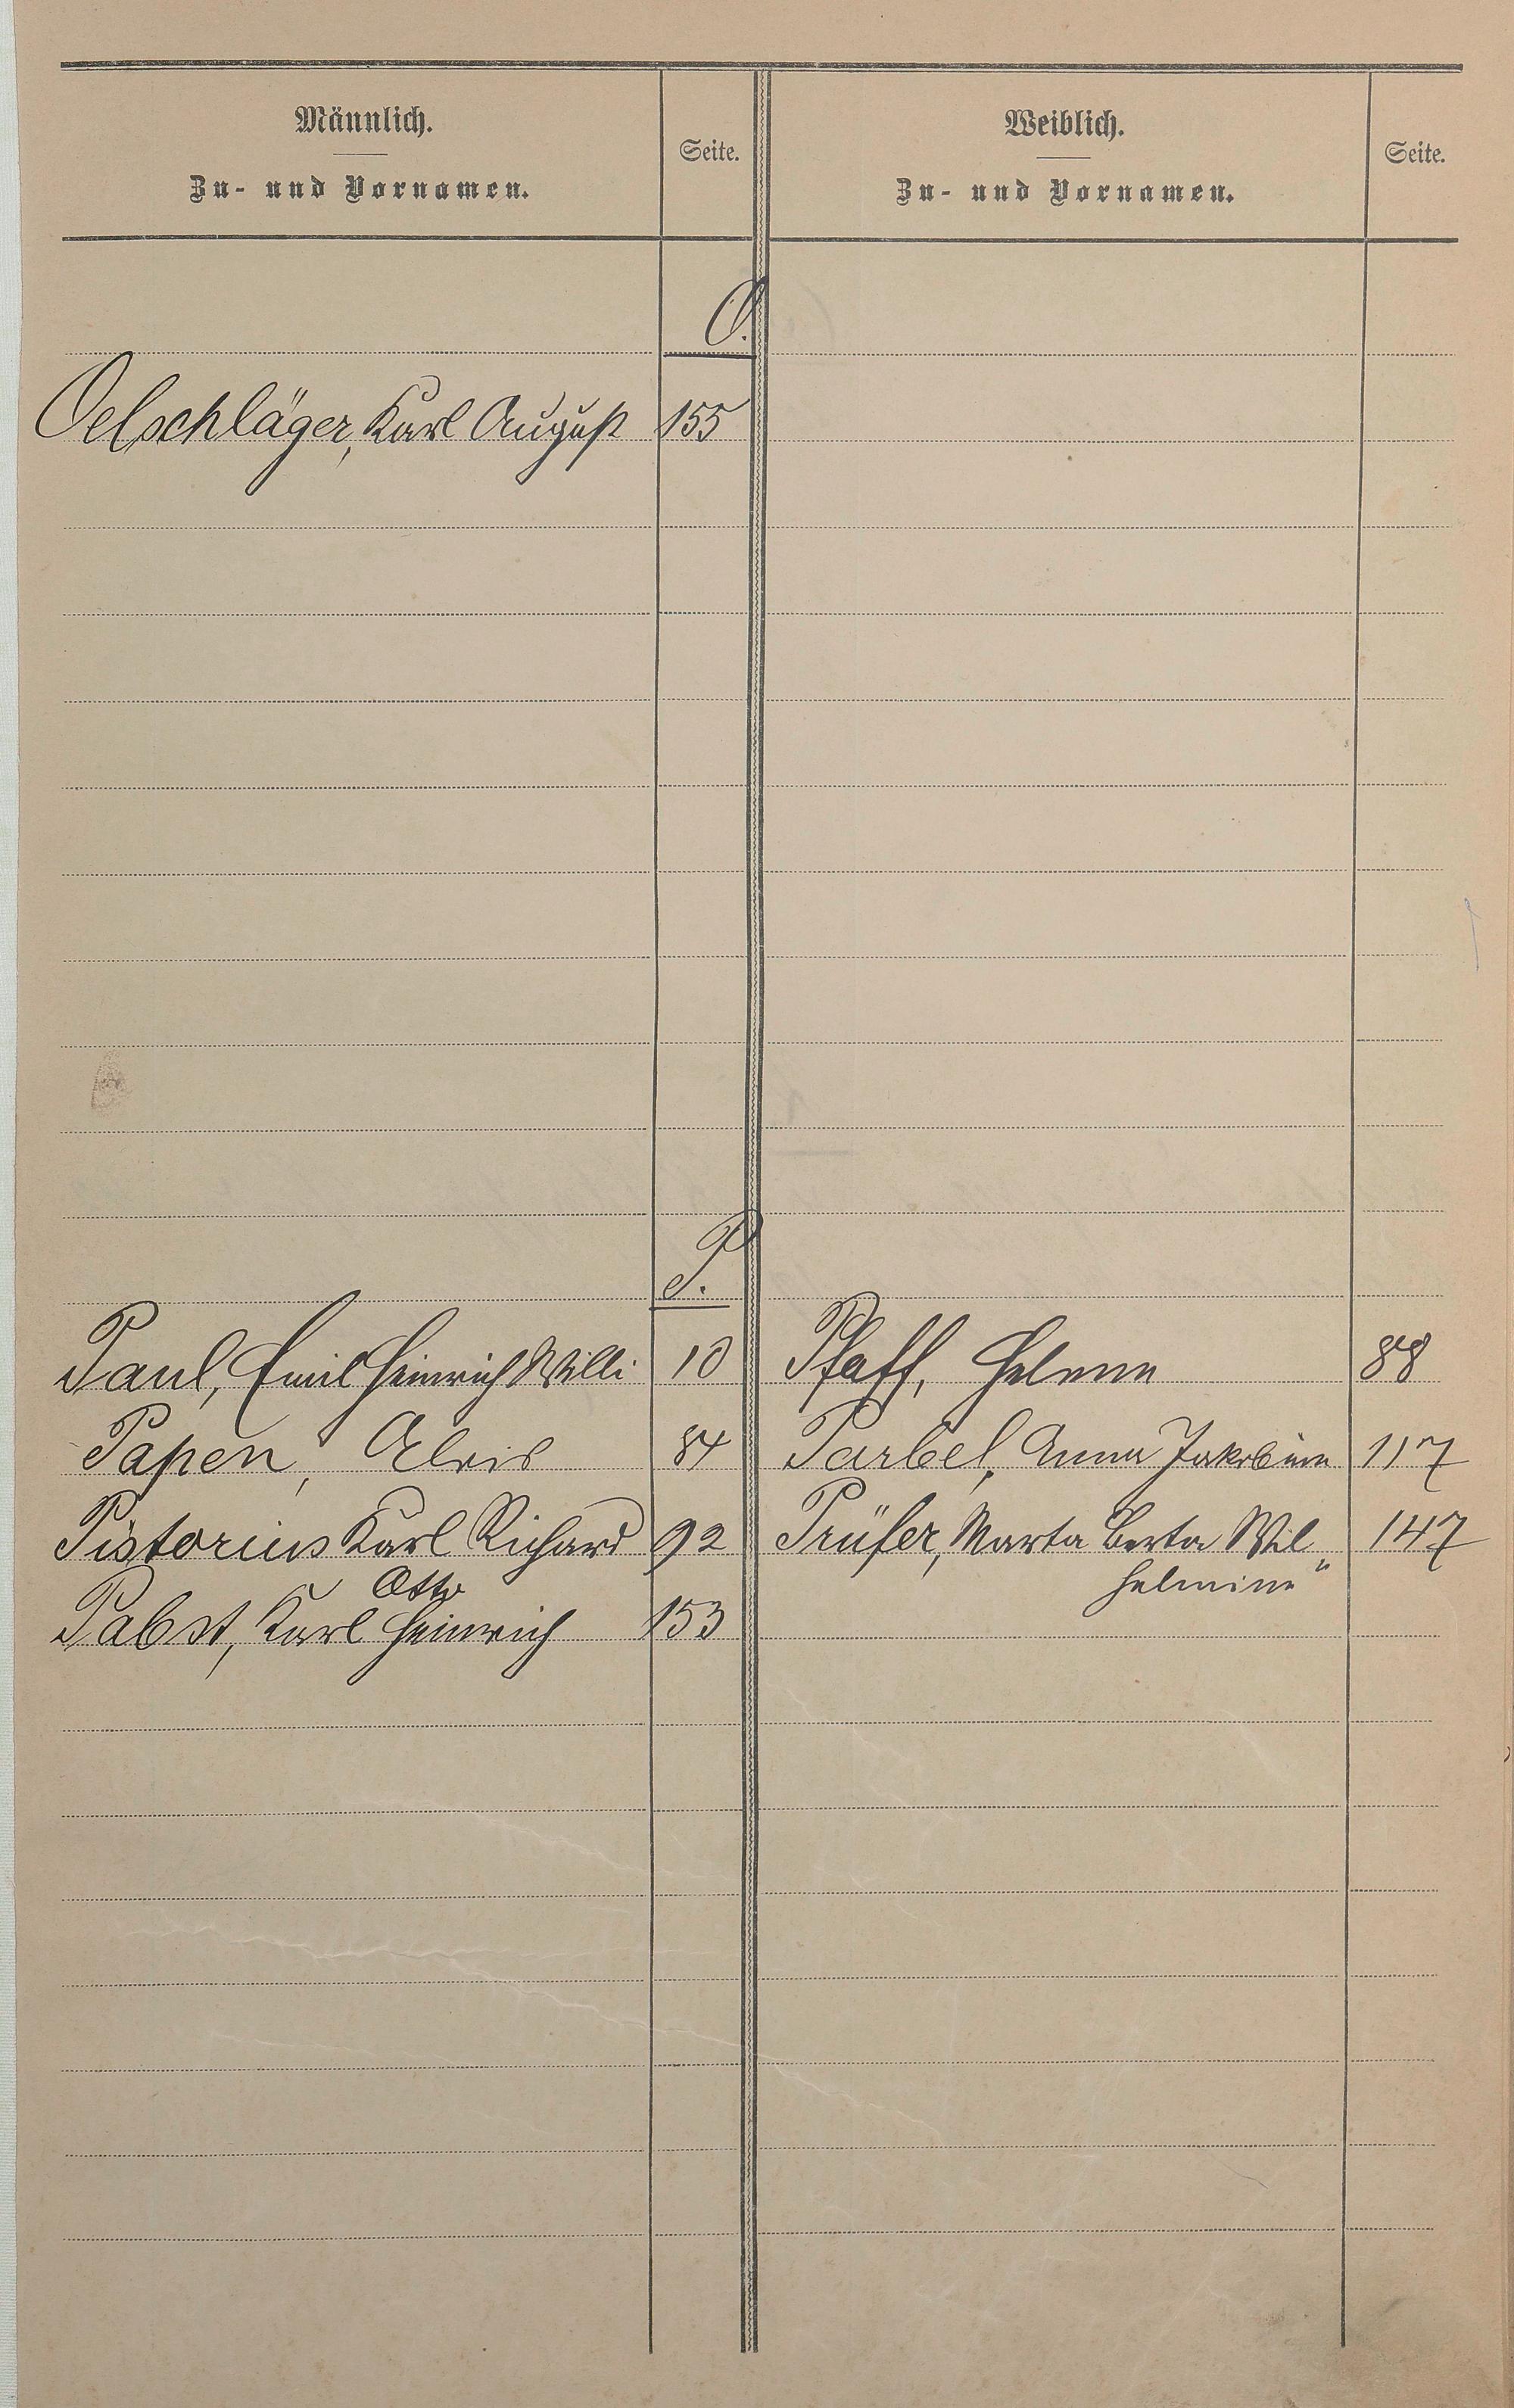 Männlich.
Zu- und Vornamen.
Seite.
Weiblich.
Zu- und Vornamen.
Seite.
O.
Oelschläger, Karl August 155
P.
Paul, Emil Heinrich Willi 10
Pfaff, Helene 88
Papen, Alois 84
Parbel, Anna Jakobine 117
Pistorius Karl Richard 92
Prüfer, Marta Berta Wil„ 147
Otto
helmine"
Pabst, Karl Heinrich 153